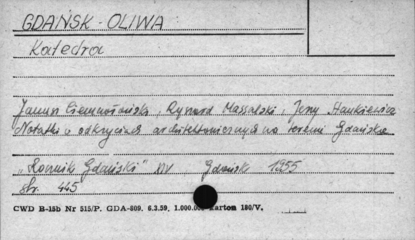 GDAŃSK - OLIWA
Katedra
Janusz Ciemnołoński, Ryszard Massalski, Jerzy Stankiewicz
Notatki o odkryciach architektonicznych na terenie Gdańska
„Rocznik Gdański" XIV, Gdańsk 1955
str. 445
CWD B-15b Nr 515/P. GDA-609. 6.3.59. 1.000.000 Karton 180/V.